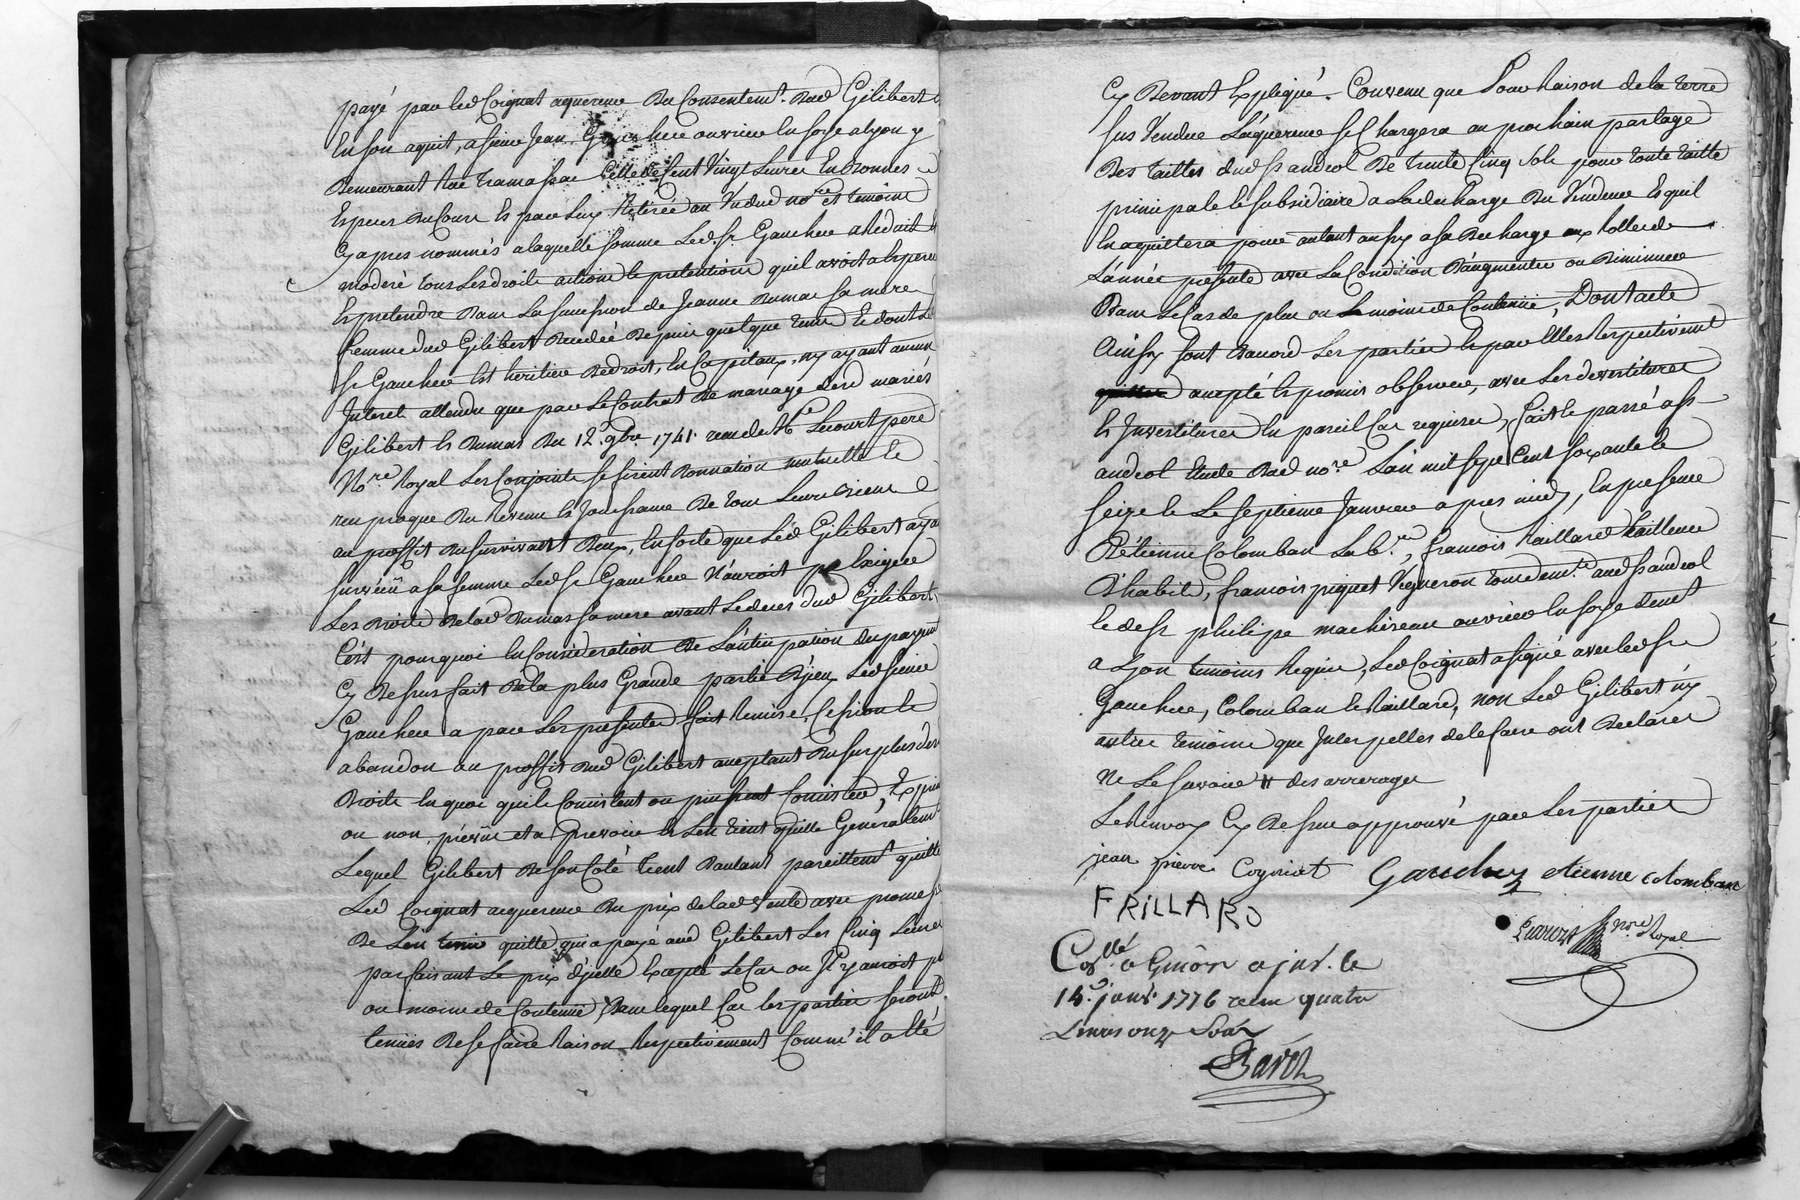 payé par led Coignat aquereur Du Consentemt. Dud Gilibert
En son aquit, a sieur Jean Gaucher ouvrier En soye a lyon y
Demeurant Rue Tramassac Celle de Cent Vingt Livres En Bonnes
Especes Du Cours Et par Luy Retirée au Vu dud nore et temoins
Cy apres nommés a laquelle somme Led. Sr. Gaucher a Reduit Et
moderé tous Les droits actions Et pretentions quil avoit a Esperer
Et pretendre Dans La succession de Jeanne Dumas sa mere
femme dud Gilibert Decedée Depuis quelque tems Et dont Led
Sr Gaucher Est heritier De droit, En Capitaux, ny ayant aucun
Interet attendu que par Le Contrat De mariage Desd mariés
Gilibert Et Dumas Du 12e. 9bre 1741. recu de Me Lecourt pere
Nore Royal Les Conjoints se firent Donnation mutuelle Et
reciproque Du Revenu Et Jouissance De tous Leurs Biens
au proffit Du survivant Deux, En sorte que Led Gilibert ayant
survécû a sa femme Led Sr Gaucher N'auroit pu Exiger
Les Droits De lad Dumas sa mere avant Le deces dud Gilibert,
C'ést pourquoi En Consideration De L'anticipation Du payemt
Cy Dessus fait De la plus Grande partie D'jceux Led sieur
Gaucher a par Les presentes fait Remise, Cession Et
abandon au proffit Dud Gilibert aceptant Du surplus desd
Droits En quoi quils Consistent ou puissent Consister,
ou non prévûs et a prevoir Et Len tient quitte Généralemt
Lequel Gilibert De son Coté tient Dautant pareillemt quitte
Led Coignat acquereur Du prix de lad Vente avec promesse
De L'en tenir quitte qui a payé aud Gilibert Les Cinq Livres
parfaisant Le prix d'jcelle Excepté Le Cas ou Il y auroit plus
ou moins de Contenüe Dans lequel Cas Les parties seront
tenües De se faire Raison Respectivement Comm'il a Eté
Cy Devant Expliqué. Convenu que Pour Raison de la terre
sus Vendue L'aquereur se Chargera au prochain partage
Des tailles dud St andeol De trente Cinq sols pour toute taille
principale Et subsidiaire a La decharge Du Vendeur Et quil
En aquittera pour autant aussy a sa Decharge aux Rolles de
L'année présente avec La Condition D'augmenter ou Diminuer
Dans Le Cas de plus ou Le moins de Contenüe, Dont acte
Ainsy sont Dacord Les parties Et par Elles Respectivemt
acepté Et promis observer, avec Les devestitures
Et Investitures En pareil Cas requises, fait Et passé a St
andeol Etude Dud nore. L'an mil sept Cent soixante Et
seize Et Le septieme Janvier apres midy, En presence
D'Etienne Colomban Labr., francois Raillard tailleur
D'habits, francois piquet Vigneron tous demts aud St andeol
Et de Sr philipe machireau ouvrier En soye demt
a Lyon temoins Requis, Led Coignat a signé avec led Sr
Gaucher, Colomban Et Raillard, non Led Gilibert ny
autres temoins que Interpellés de le faire ont Declarés
Ne Le savoir # des arrerages
Le Renvoy Cy Dessus approuvé par Les parties
jean pierre Coyniat Gaucher etienne colomban
FRILLARD
nre Royal
Collé a Givors a jnt. le
14e. janv. 1776 recu quatre
Livres onze sols